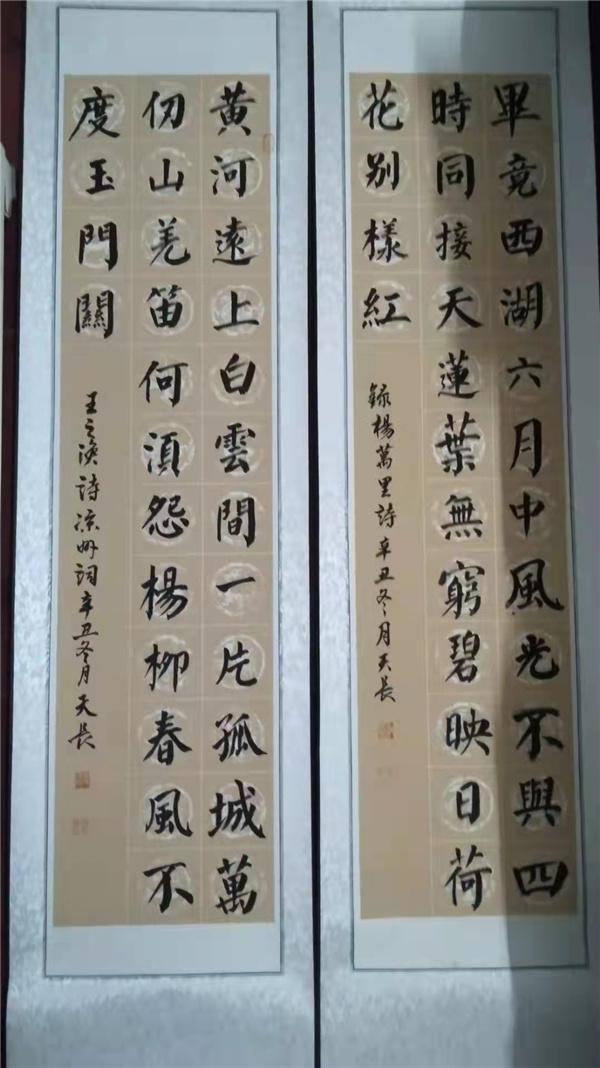 畢竟西湖六月中風光不與四
時同接天蓮葉無窮碧映日荷
花別樣紅
録楊萬里詩辛丑冬月天長
黄河遠上白雲間一片孤城萬
仞山羌笛何湏怨楊柳春風不
度玉門關
王之渙詩凉州詞辛丑冬月天長